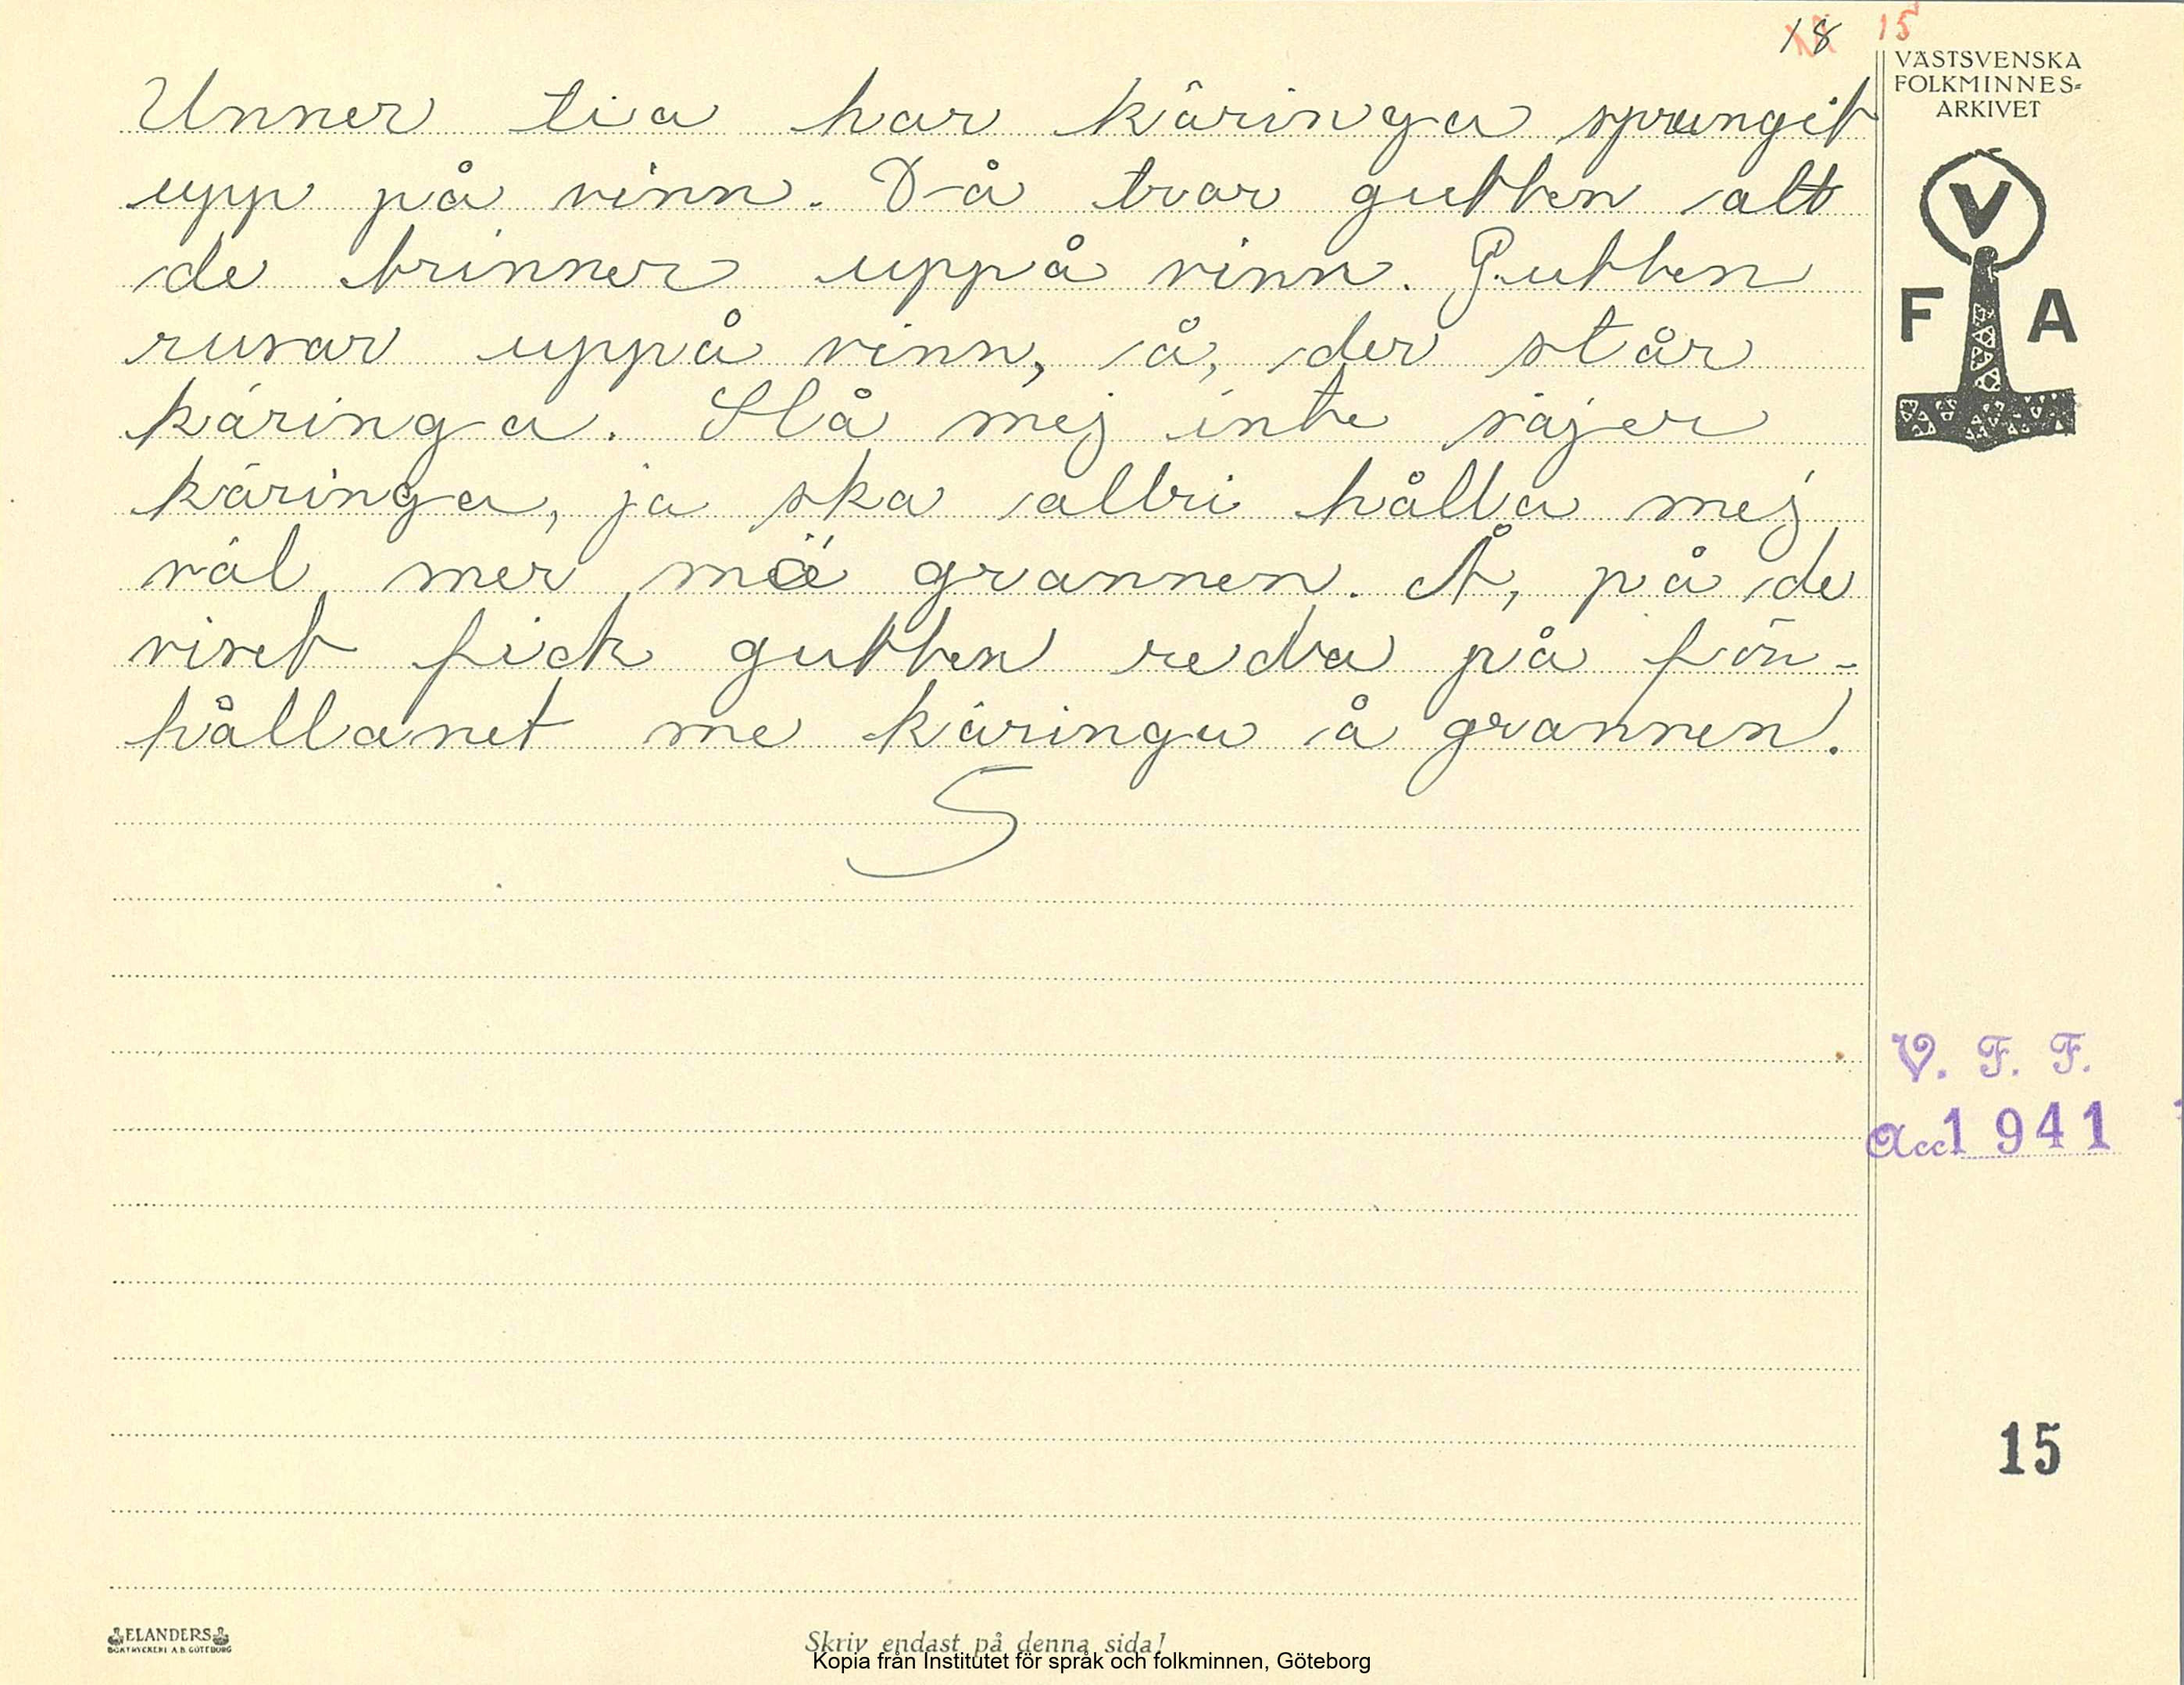 18 15
VÄSTSVENSKA
FOLKMINNES-
ARKIVET
V
F A
Unner tia har käringa sprungit
upp på vinn. Då tror gubben att
de brinner uppå vinn. Gubben
rusar uppå vinn, å, der står
käringa. Slå mej inte säjer
käringa, ja ska alldri hålla mej
väl mer mä grannen. Å, på de
viset fick gubben reda på för-
hållanet me käringa å grannen.
V. F. F.
Acc 1941
15
ELANDERS
BOKTRYCKERI A.B. GÖTEBORG
Skriv endast på denna sida!
Kopia från Institutet för språk och folkminnen, Göteborg